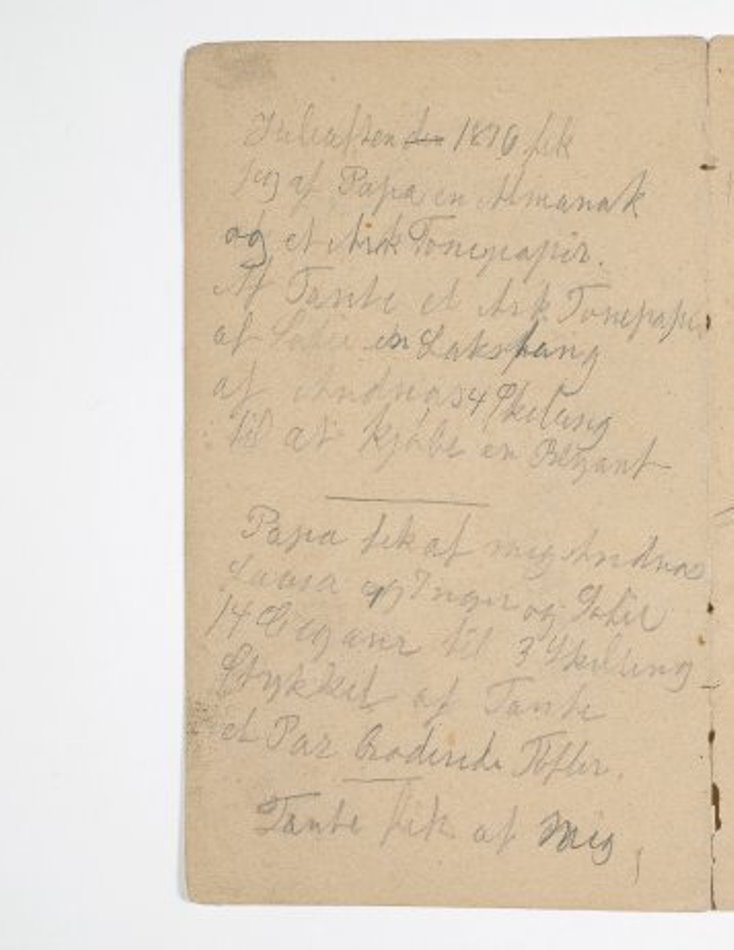 Juleaften den 1876 fik
jeg af Papa en Almanak
og et Ark Tonepapir.
Af Tante et Ark Tonepapir
af Sofie en Lakstang
af Andreas 4 Skeling
til at kjøbe en Blyant
Papa fik af mig Andreas
Laura og Inger og Sofie
14 Cigarer til 3 Skilling
Stykket af Tante
et Par Broderede Tøfler.
Tante fik af Mig